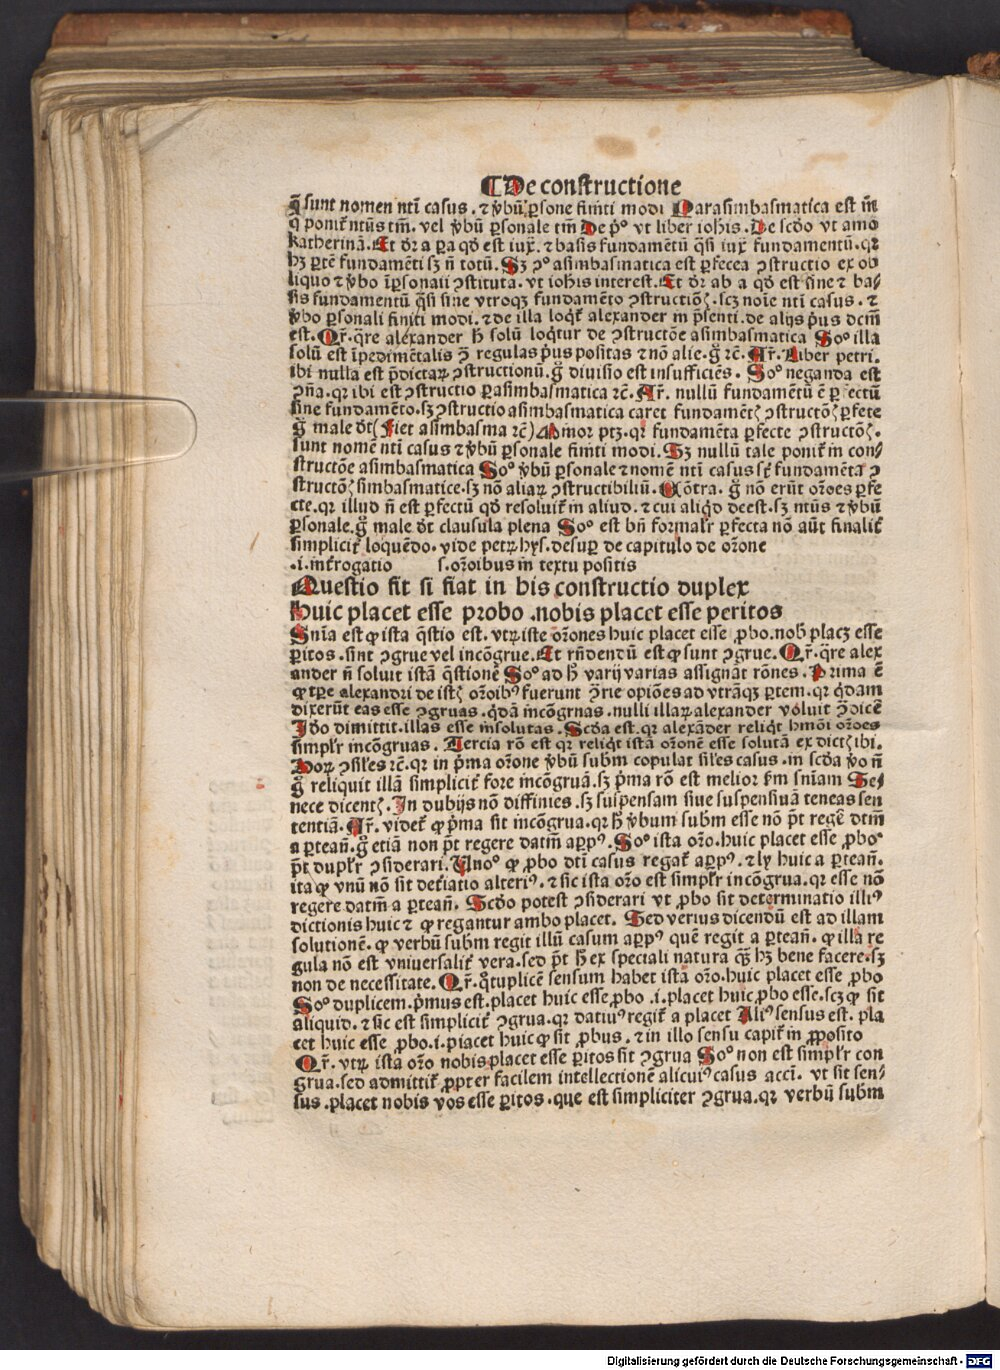 ¶De constructione
q̄ sunt nomen nti casus . ⁊ v̓bū ꝑsone finiti modi Parasimbasmatica est in̄
q ponit᷑ ntūs tm̄. vel v̓bū ꝑsonale tm̄ De pº vt liber ioh̓is. De scd̓o vt amo
katherinā. Et dr̄ a ꝑa qd̓ est iux̄. ⁊ basis fundamētū q̄si iux̄ fundamentū. qꝛ
hꝫ ꝑtē fundamēti sꝫ n̄ totū. Sꝫ ꝯº asimbasmatica est ꝑfecea ꝯstructio ex ob
liquo ⁊ v̓bo īꝑsonali ꝯstituta. vt ioh̓is interest. Et dr̄ ab a qd̓ est sine ⁊ ba⸗
sis fundamentū q̄si sine vtroqꝫ fundamēto ꝯstructiōꝭ. scꝫ noīe nti casus . ⁊
v̓bo ꝑsonali finiti modi. ⁊ de illa loqt᷑ alexander in p̄senti. de alijs pͥus dcm̄
est. Qr̄. q̄re alexander h̄ solū loqt᷑ur de ꝯstructōe asimbasmatica Soº illa
solū est īpedimētalis ꝯ̄ regulas pͥus positas ⁊ nō alie. g̊ ꝛc̄. Ar̄. Liber petri.
ibi nulla est p̄dictaꝝ ꝯstructionū. g̊ diuisio est insufficiēs. Soº neganda est
ꝯn̄a. qꝛ ibi est ꝯstructio ꝑasimbasmatica ꝛc̄. Ar̄. nullū fundamētū ē ꝑfectū
sine fundamēto. sꝫ ꝯstructio asimbasmatica caret fundamētꝭ ꝯstructōꝭ ꝑfete
g̊ male dr̄t (Fiet asimbasma ꝛc̄) Minor ptꝫ. qꝛ fundamēta ꝑfecte ꝯstructōꝭ.
sunt nomē nti casus ⁊ v̓bū ꝑsonale finiti modi. Sꝫ nullū tale ponit᷑ in con⸗
structōe asimbasmatica Soº v̓bū ꝑsonale ⁊ nomē nti casus st̄ fundamēta ꝯ
structōꝭ simbasmatice. sꝫ nō aliaꝝ ꝯstructibiliū. Cōtra. g̊ nō erūt orōes ꝑfe
cte. qꝛ illud n̄ est ꝑfectū qd̓ resoluit᷑ in aliud. ⁊ cui aliqd̓ deest. sꝫ ntūs ⁊ v̓bū
ꝑsonale. g̊ male dr̄t clausula plena Soº est bn̄ formalr̄ ꝑfecta nō aūt finalit᷑
simplicit᷑ loquēdo. vide petꝝ hys. desuꝑ de capitulo de orōne
.i. int᷑rogatio s. orōibus in textu positis
Questio fit si fiat in his constructio duplex
Huic placet esse probo .nobis placet esse peritos
Snīa est ꝙ ista q̄stio est. vtꝝ iste orōnes huic placet esse ꝓbo. nob̓ placꝫ esse
ꝑitos . sint ꝯgrue vel incōgrue. Et rn̄dendū est ꝙ sunt ꝯgrue. Qr̄. q̄re alex
ander n̄ soluit istā q̄stionē Soº ad h̄ varij varias assignāt rōnes . Prima ē
ꝙ tꝑe alexandri de istꝭ orōibꝰ fuerunt ꝯ̄rie opiōes ad vtrāqꝫ ꝑtem. qꝛ qͥdam
dixerūt eas esse ꝯgruas .qͥdā incōgruas. nulli illaꝝ alexander voluit ꝯ̄dicē
Id̓o dimittit .illas esse insolutas. Scd̓a est. qꝛ alexāder reliqͥt hmōi orōes
simplr̄ incōgruas. Tercia rō est qꝛ reliqͥt istā orōnē esse solutā ex dictꝭ ibi.
Hoꝝ ꝯsiles ꝛc̄. qꝛ in pͥma orōne v̓bū subm copulat siles casus . in scd̓a v̓o n̄
g̊ reliquit illā simplicit᷑ fore incōgruā. sꝫ pͥma rō est melior ẜm snīam Se⸗
nece dicentꝭ. In dubijs nō diffinies. sꝫ suspensam siue suspensiuā teneas sen
tentiā. Ar̄. videt᷑ ꝙ pͥma sit incōgrua. qꝛ h̄ v̓bum subm esse nō pt̄ regē dtm̄
a ꝑte an̄. g̊ etiā non pt̄ regere datm̄ a ꝑpꝰ. Soº ista orō. huic placet esse ꝓboº
pt̄ duplr̄ ꝯsiderari. Unoº ꝙ ꝓbo dti casus regat᷑ a ꝑpꝰ. ⁊ ly huic a ꝑte an̄.
ita ꝙ vnū nō sit det᷑iatio alteriꝰ. ⁊ sic ista orō est simplr̄ incōgrua. qꝛ esse nō
regere datm̄ a ꝑte an̄. Scd̓o potest ꝯsiderari vt ꝓbo sit determinatio illiꝰ
dictionis huic ⁊ ꝙ regantur ambo placet. Sed verius dicendū est ad illam
solutionē. ꝙ verbū subm regit illū casum a ꝑpꝰ quē regit a ꝑte an̄. ꝙ illa re
gula nō est vniuersalit᷑ vera. sed pt̄ h̄ ex speciali natura qͣꝫ hꝫ bene facere. sꝫ
non de necessitate. Qr̄. qͣtuplicē sensum habet ista orō. huic placet esse ꝓbo
Soº duplicem. pͥmus est. placet huic esse ꝓbo .i. placet huic ꝓbo esse. scꝫ ꝙ sit
aliquid. ⁊ sic est simplicit᷑ ꝯgrua. qꝛ datiuꝰ regit᷑ a placet Aliꝰ sensus est. pla
cet huic esse ꝓbo. i. placet huic ꝙ sit ꝓbus. ⁊ in illo sensu capit᷑ in ꝓposito
Qr̄. vtꝝ ista orō nobis placet esse ꝑitos sit ꝯgrua Soº non est simplr̄ con
grua. sed admittit᷑ ꝓpter facilem intellectionē alicuiꝰ casus acc̄i. vt sit sen⸗
sus .placet nobis vos esse ꝑitos . que est simpliciter ꝯgrua. qꝛ verbū subm
Digitalisierung gefördert durch die Deutsche Forschungsgemeinschaft - DFG